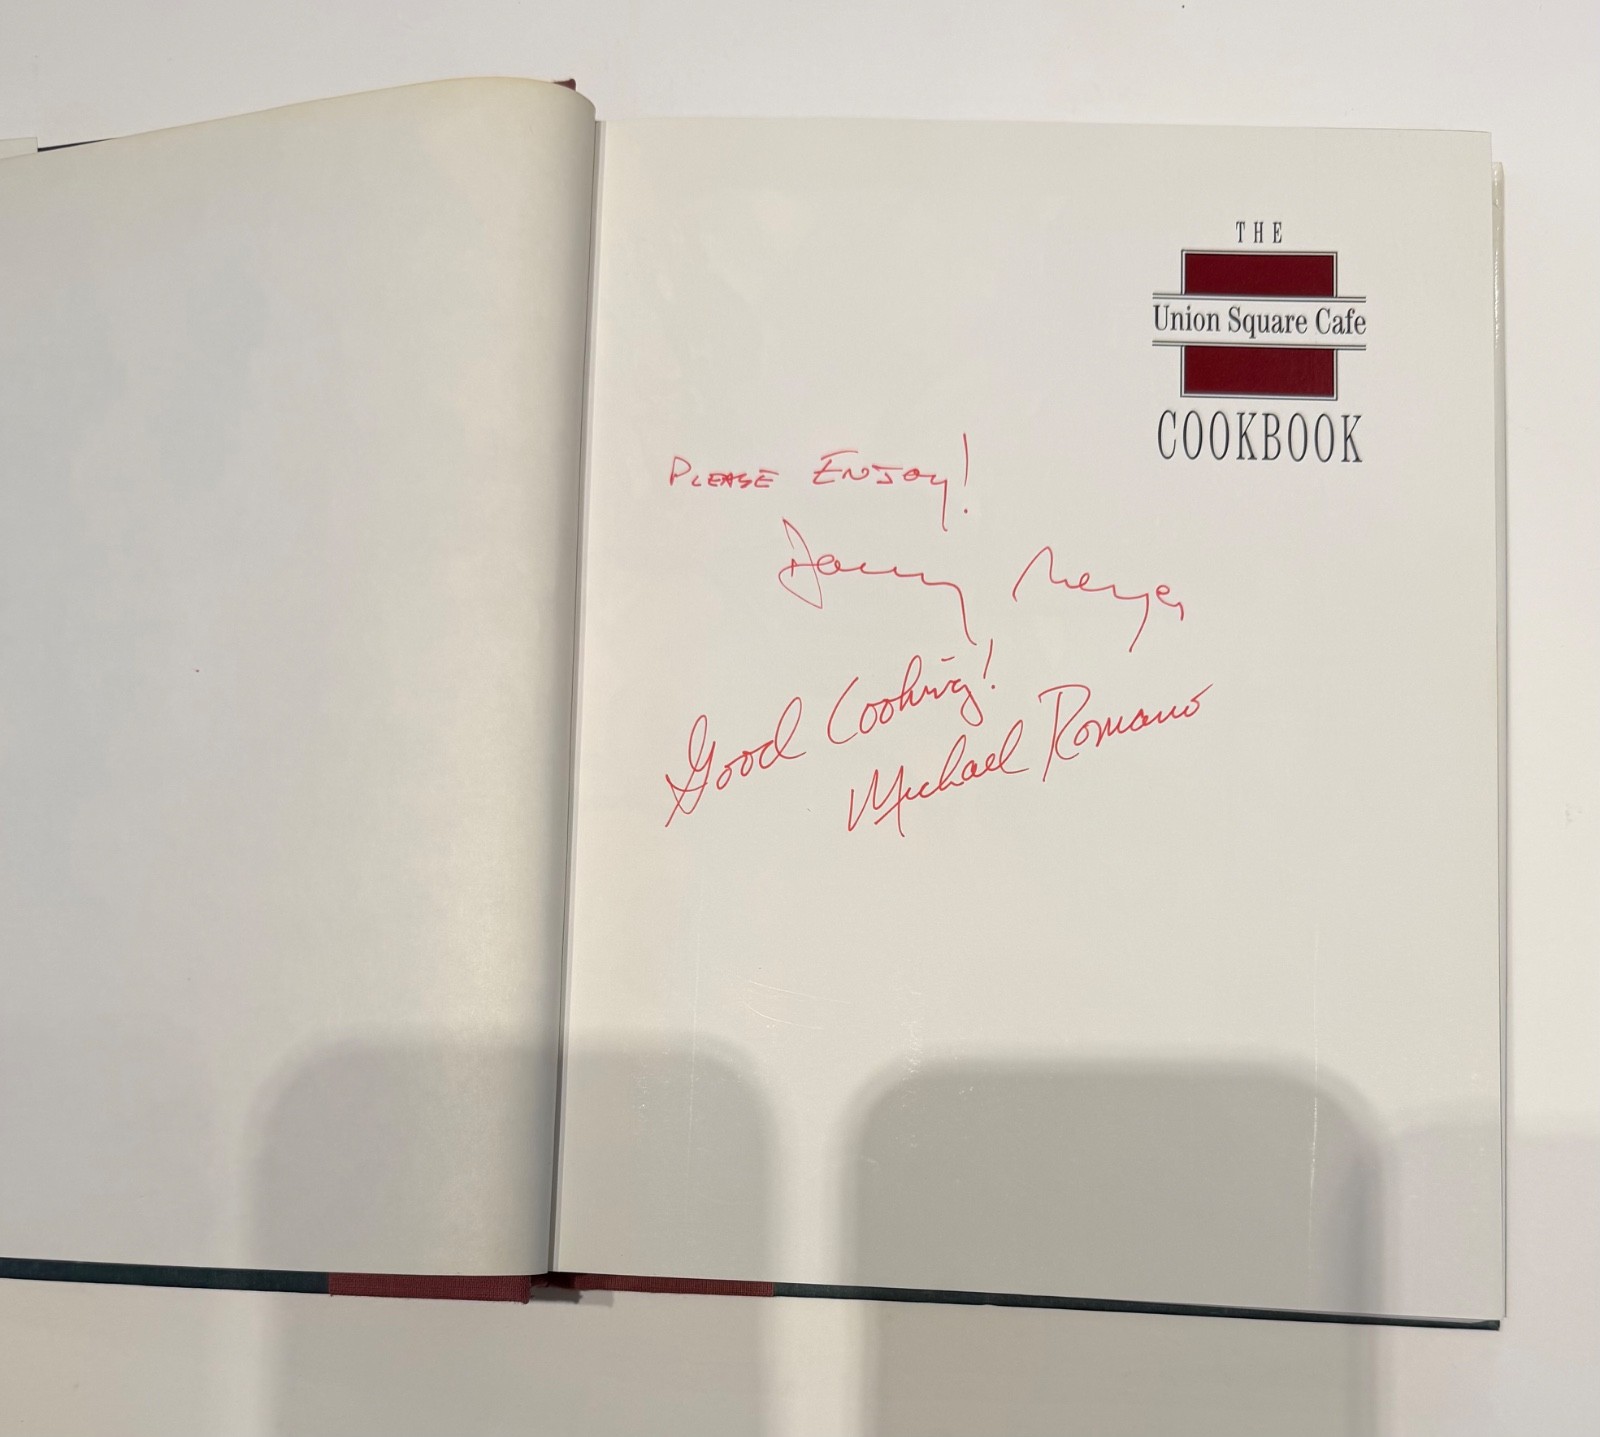 THE
Union Square Cafe
COOKBOOK
PLEASE ENJOY!
Danny Meyer
Good Cooking!
Michael Romano